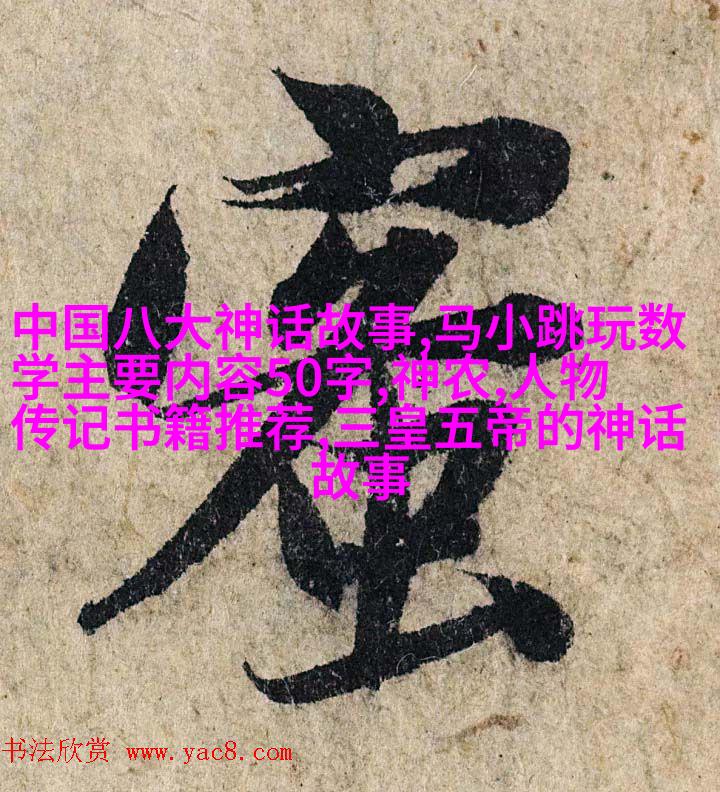 中国八大神话故事,马小跳玩数
学主要内容50字,神农,人物
传记书籍推荐,三皇五帝的神话
故事
书法欣赏 www.yac8.com